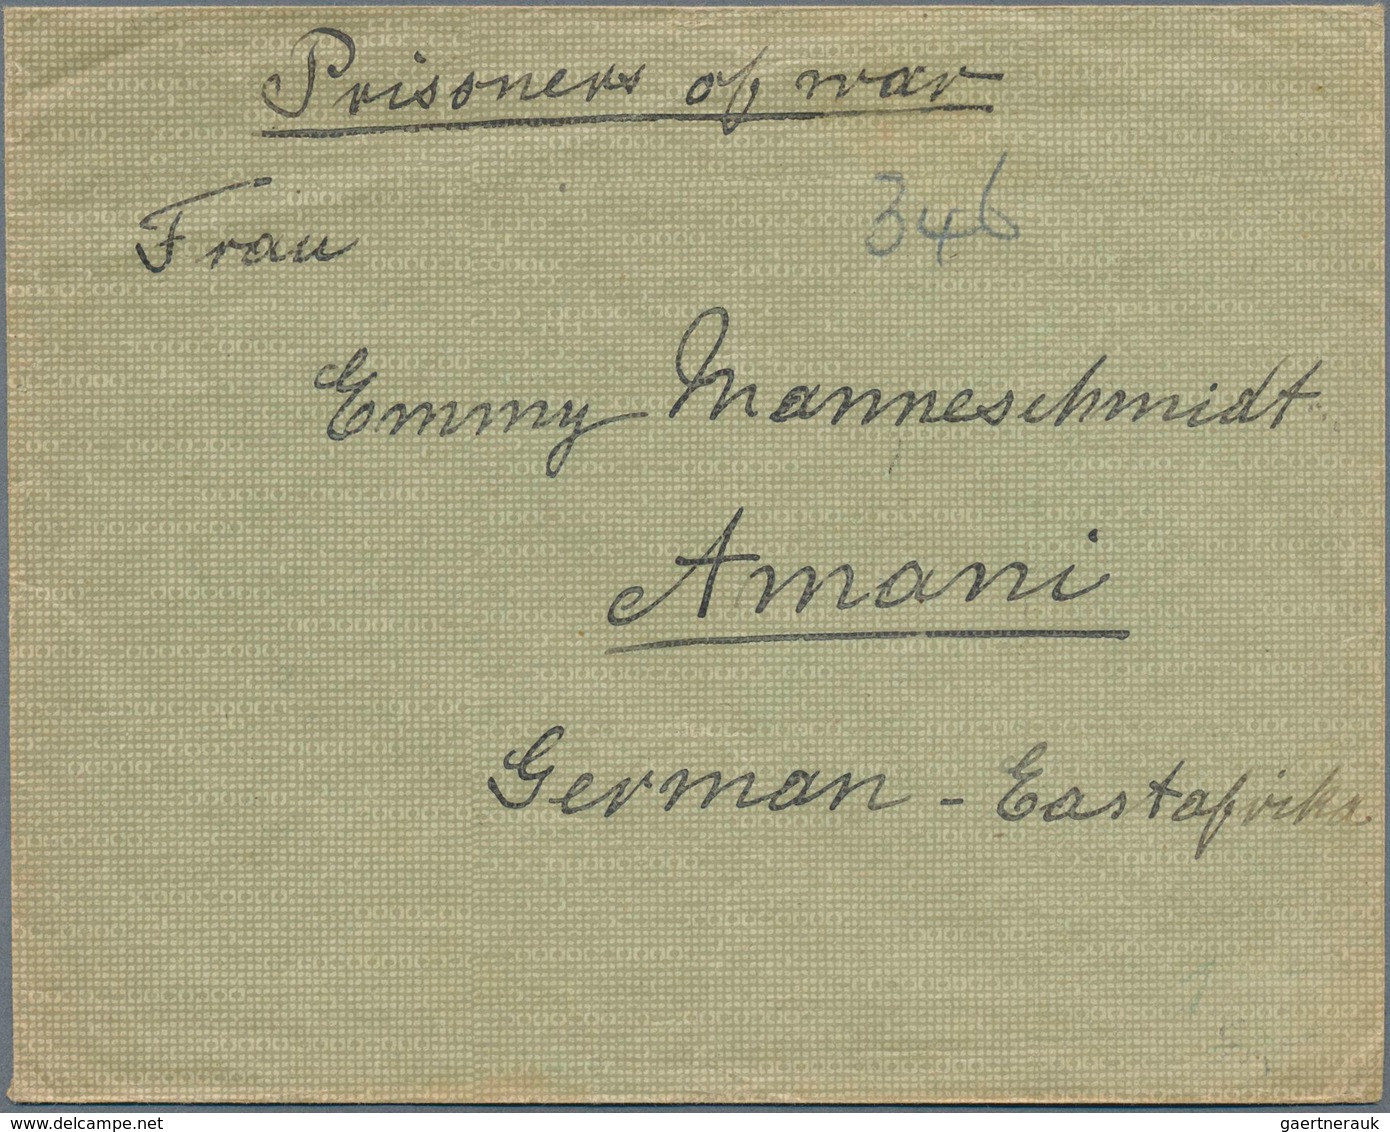 Prisoners of war
346
Frau
Emmy Manneschmidt
Amani
German - Eastafrika
www.delcampe.net
gaertnerauk